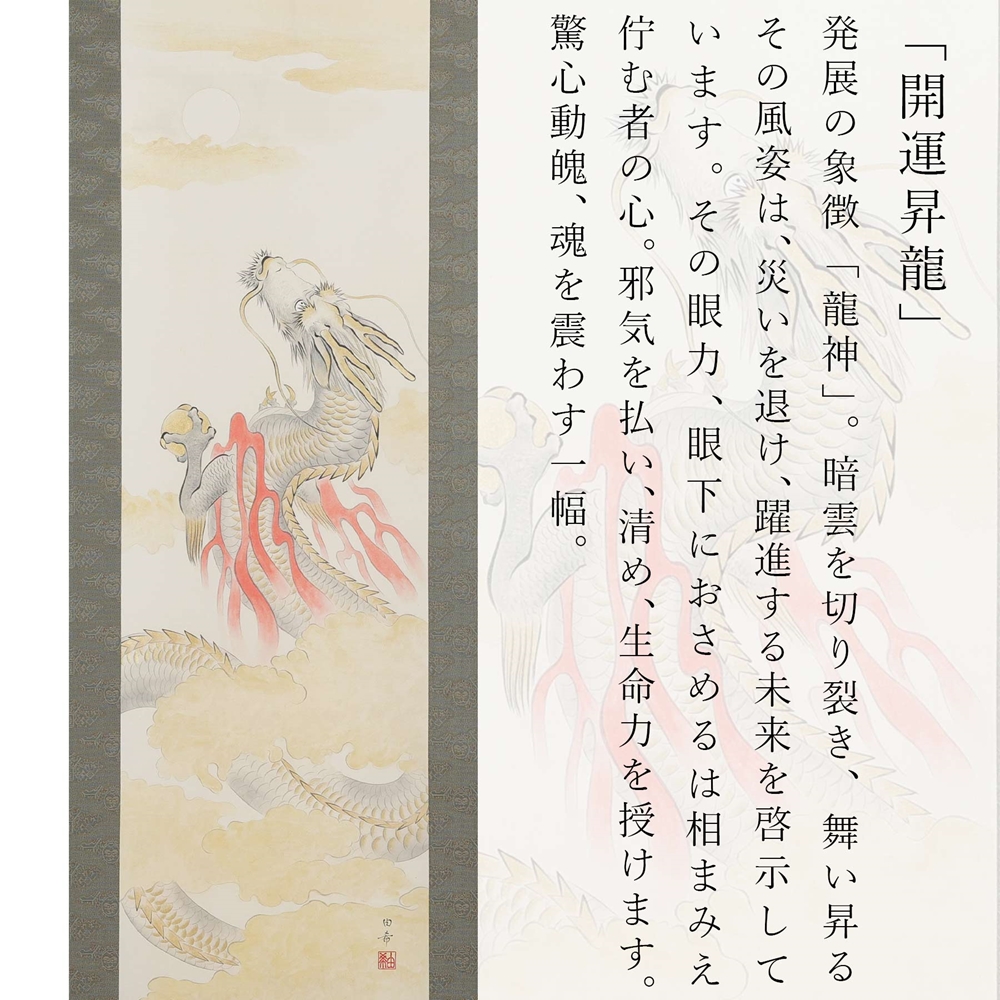 「開運昇龍」
発展の象徴「龍神」。暗雲を切り裂き、舞い昇る
その風姿は、災いを退け、躍進する未来を啓示して
います。その眼力、眼下におさめるは相まみえ
佇む者の心。邪気を払い、清め、生命力を授けます。
驚心動魄、魂を震わす一幅。